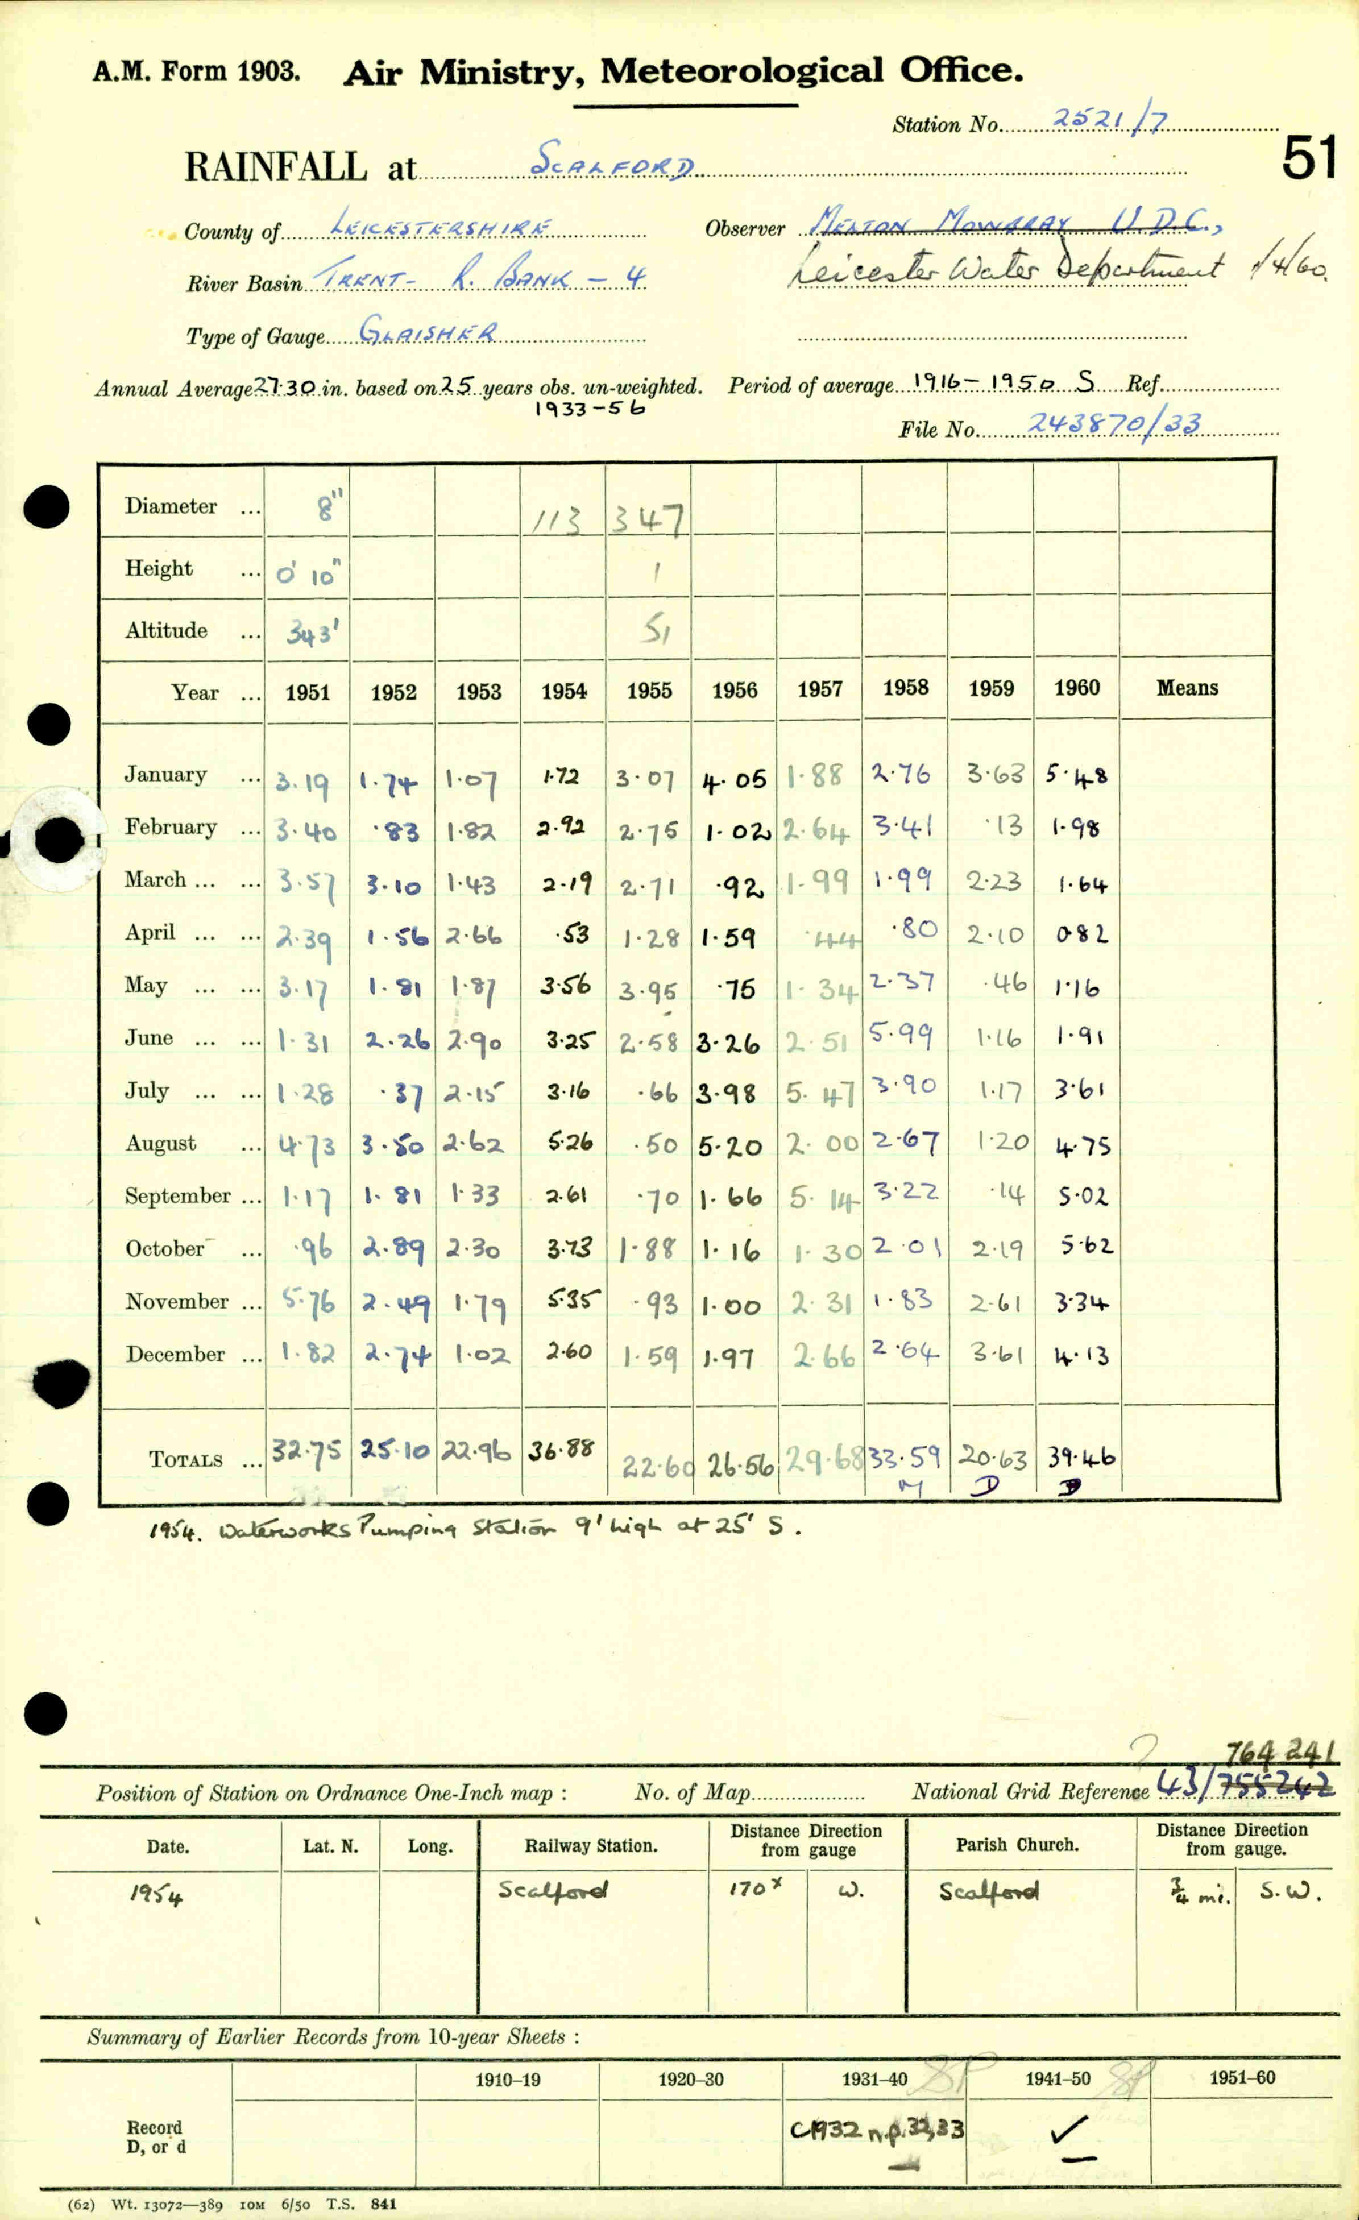 A.M. Form 1903. Air Ministry, Meteorological Office.
Station No. 2521/7
51
RAINFALL at SCALFORD
County of LEICESTERSHIRE Observer MELTON MOWBRAY U.D.C.,
River Basin TRENT- R. BANK - 4 Leicester Water Department 1/4/60.
Type of Gauge GLAISHER
Annual Average 27·30 in. based on 25 years obs. un-weighted. Period of average 1916-1950 S Ref.
1933-56
File No. 243870/33
Diameter ... 8" 113 347
Height ... 0' 10" 1
Altitude ... 343' 51
Year ... 1951 1952 1953 1954 1955 1956 1957 1958 1959 1960 Means
January ... 3·19 1·74 1·07 1·72 3·07 4·05 1·88 2·76 3·63 5·48
February ... 3·40 ·83 1·82 2·92 2·75 1·02 2·64 3·41 ·13 1·98
March ... ... 3·57 3·10 1·43 2·19 2·71 ·92 1·99 1·99 2·23 1·64
April ... ... 2·39 1·56 2·66 ·53 1·28 1·59 ·44 ·80 2·10 0·82
May ... ... 3·17 1·81 1·87 3·56 3·95 ·75 1·34 2·37 ·46 1·16
June ... ... 1·31 2·26 2·90 3·25 2·58 3·26 2·51 5·99 1·16 1·91
July ... ... 1·28 ·37 2·15 3·16 ·66 3·98 5·47 3·90 1·17 3·61
August ... 4·73 3·50 2·62 5·26 ·50 5·20 2·00 2·67 1·20 4·75
September ... 1·17 1·81 1·33 2·61 ·70 1·66 5·14 3·22 ·14 5·02
October ... ·96 2·89 2·30 3·73 1·88 1·16 1·30 2·01 2·19 5·62
November ... 5·76 2·49 1·79 5·35 ·93 1·00 2·31 1·83 2·61 3·34
December ... 1·82 2·74 1·02 2·60 1·59 1·97 2·66 2·64 3·61 4·13
TOTALS ... 32·75 25·10 22·96 36·88 22·60 26·56 29·68 33·59 20·63 39·46
M D D
1954. Waterworks Pumping Station 9' high at 25' S.
? 764 241
Position of Station on Ordnance One-Inch map : No. of Map National Grid Reference 43/755242
Date. Lat. N. Long. Railway Station. Distance from gauge Direction Parish Church. Distance from gauge. Direction
1954 Scalford 170ˣ W. Scalford ¾ mi. S.W.
Summary of Earlier Records from 10-year Sheets :
1910–19 1920–30 1931–40 SP 1941–50 SP 1951–60
Record
D, or d C1932 n.p. 32,33 ✓
(62) Wt. 13072—389 10M 6/50 T.S. 841